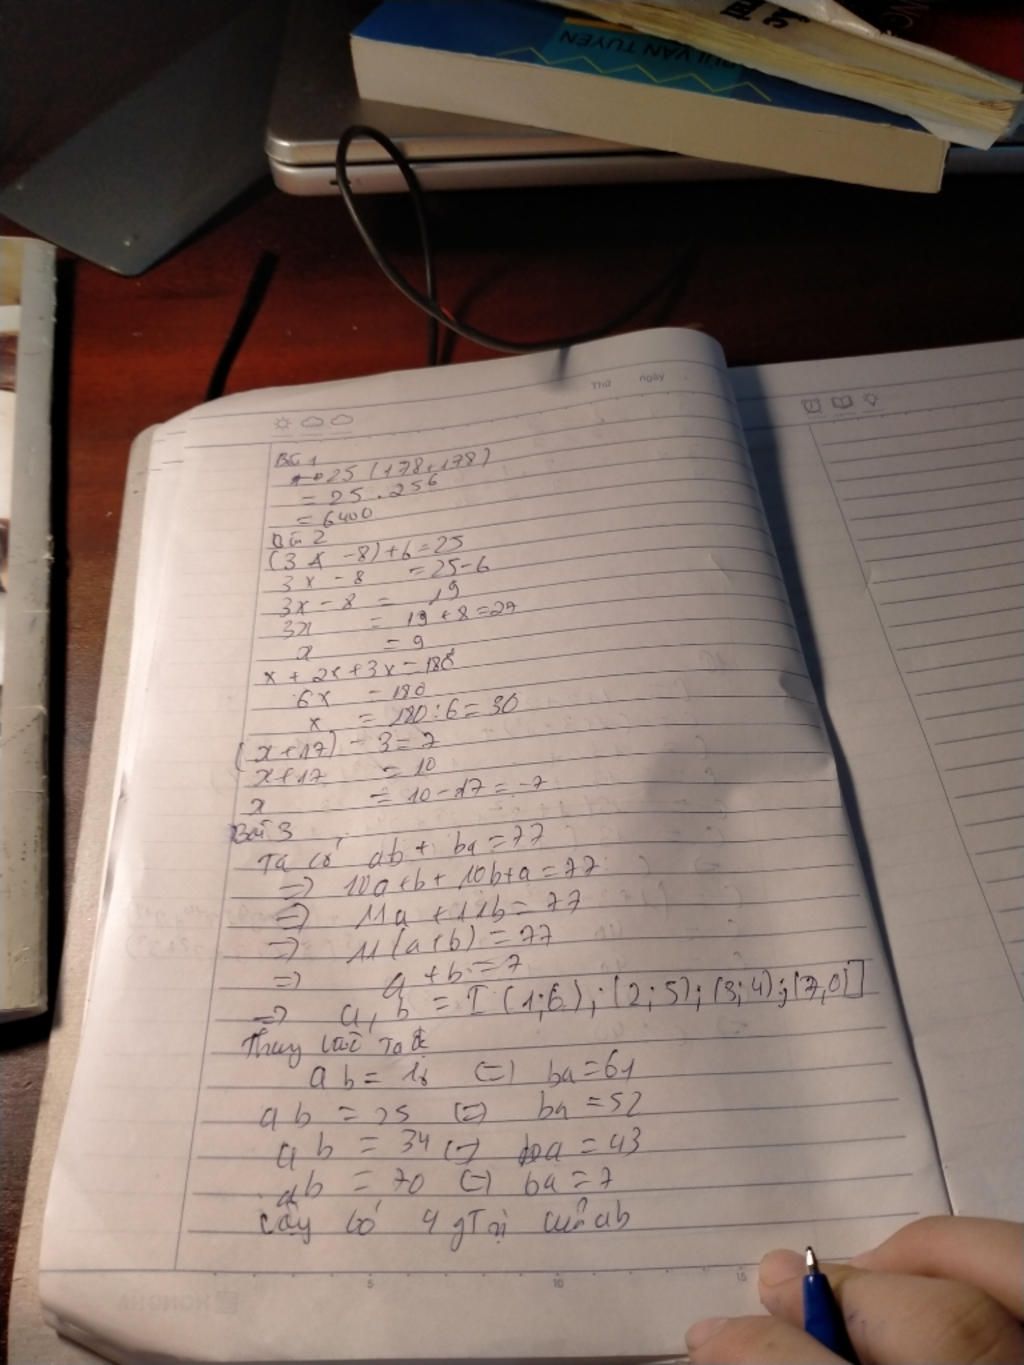 BÙI VĂN TUYÊN
Thứ ngày
Bài 1
25 (178+178)
= 25 . 256
= 6400
Bài 2
(3x - 8) + 6 = 25
3x - 8 = 25 - 6
3x - 8 = 19
3x = 19 + 8 = 27
x = 9
x + 2x + 3x = 180
6x = 180
x = 180 : 6 = 30
(x + 17) - 3 = 7
x + 17 = 10
x = 10 - 17 = -7
Bài 3
Ta có ab + ba = 77
=> 10a + b + 10b + a = 77
=> 11a + 11b = 77
=> 11(a+b) = 77
=> a + b = 7
=> a, b = [(1;6); (2;5); (3;4); (7,0)]
Thay lại ta đc
ab = 16 (=) ba = 61
ab = 25 (=) ba = 52
ab = 34 (=) ba = 43
ab = 70 (=) ba = 7
có 4 gTrị của ab
5 10 15
HONG HA